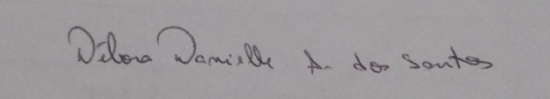 Débora Danielle A. dos Santos